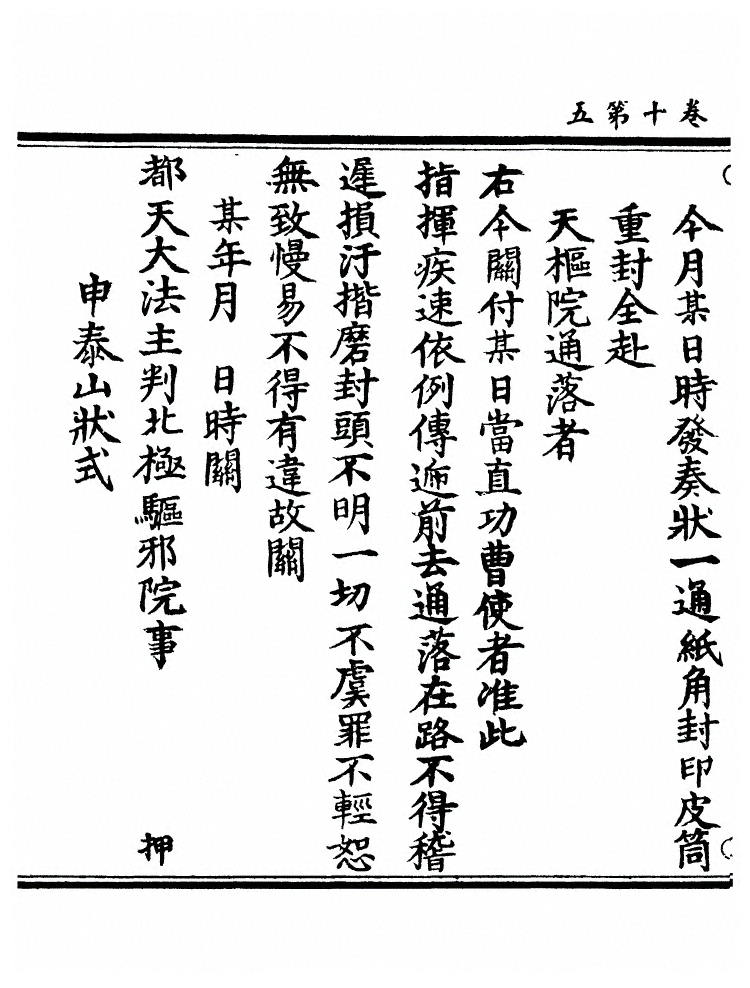 卷十第五
今月某日時發奏狀一通紙角封印皮筒
重封全赴
天樞院通落者
右今關付某日當直功曹使者准此
指揮疾速依例傳遞前去通落在路不得稽
遲損汙揩磨封頭不明一切不虞罪不輕恕
無致慢易不得有違故關
某年月　日時關
都天大法主判北極驅邪院事　押
申泰山狀式